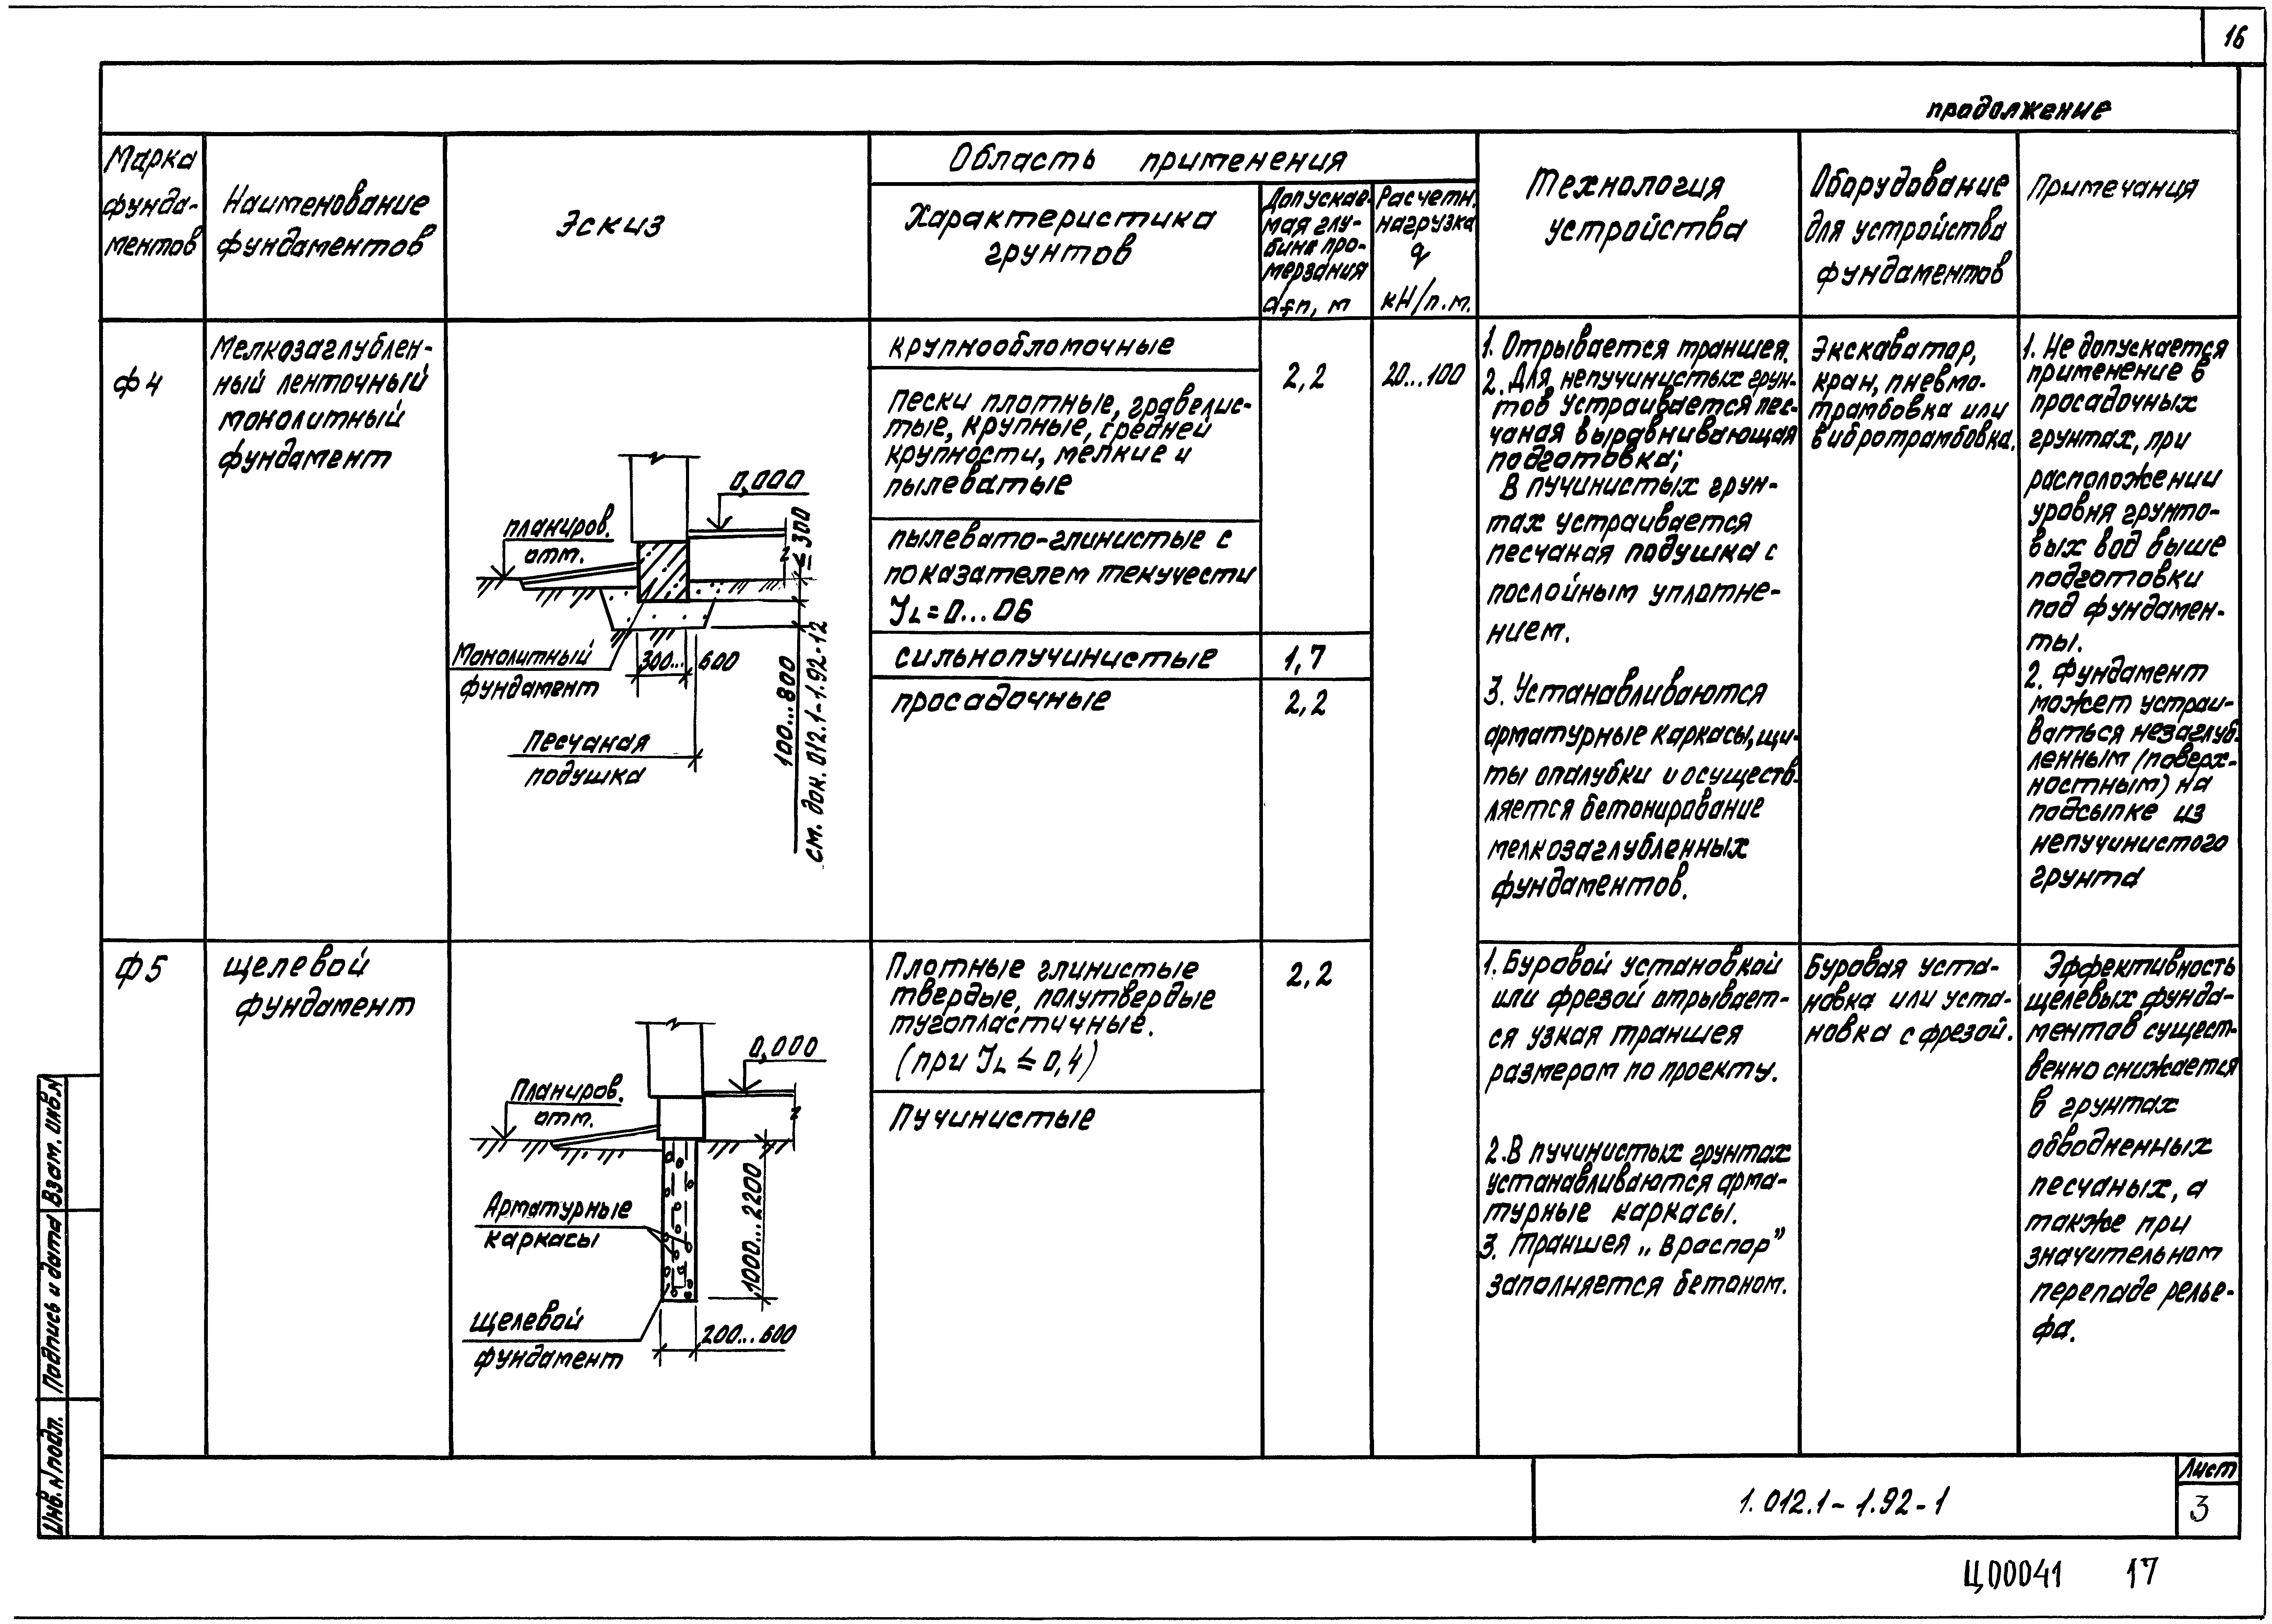 16
продолжение
Марка
фунда-
ментов
Наименование
фундаментов
Эскиз
Область применения
Характеристика
грунтов
Допускае-
мая глу-
бина про-
мерзания
dfn, м
Расчетн.
нагрузка
q
кН/п.м.
Технология
устройства
Оборудование
для устройства
фундаментов
Примечания
Ф4
Мелкозаглублен-
ный ленточный
монолитный
фундамент
0,000
планиров.
отм.
z
≤300
Монолитный
фундамент
300...600
Песчаная
подушка
100...800
см. док. 012.1-1.92-12
крупнообломочные
Пески плотные, гравелис-
тые, крупные, средней
крупности, мелкие и
пылеватые
пылевато-глинистые с
показателем текучести
JL=0...06
сильнопучинистые
просадочные
2,2
1,7
2,2
20...100
1. Отрывается траншея.
2. Для непучинистых грун-
тов устраивается пес-
чаная выравнивающая
подготовка;
В пучинистых грун-
тах устраивается
песчаная подушка с
послойным уплотне-
нием.
3. Устанавливаются
арматурные каркасы, щи-
ты опалубки и осуществ-
ляется бетонирование
мелкозаглубленных
фундаментов.
Экскаватор,
кран, пневмо-
трамбовка или
вибротрамбовка.
1. Не допускается
применение в
просадочных
грунтах, при
расположении
уровня грунто-
вых вод выше
подготовки
под фундамен-
ты.
2. Фундамент
может устраи-
ваться незаглуб-
ленным (поверх-
ностным) на
подсыпке из
непучинистого
грунта
Ф5
щелевой
фундамент
0,000
Планиров.
отм.
z
Арматурные
каркасы
1000...2200
Щелевой
фундамент
200...600
Плотные глинистые
твердые, полутвердые
тугопластичные.
(при JL ≤ 0,4)
Пучинистые
2,2
1. Буровой установкой
или фрезой отрывает-
ся узкая траншея
размером по проекту.
2. В пучинистых грунтах
устанавливаются арма-
турные каркасы.
3. Траншея „враспор”
заполняется бетоном.
Буровая уста-
новка или уста-
новка с фрезой.
Эффективность
щелевых фунда-
ментов сущест-
венно снижается
в грунтах
обводненных
песчаных, а
также при
значительном
перепаде релье-
фа.
Взам. инв.N
Подпись и дата
Инв. N подл.
1.012.1-1.92-1
Лист
3
Ц00041 17